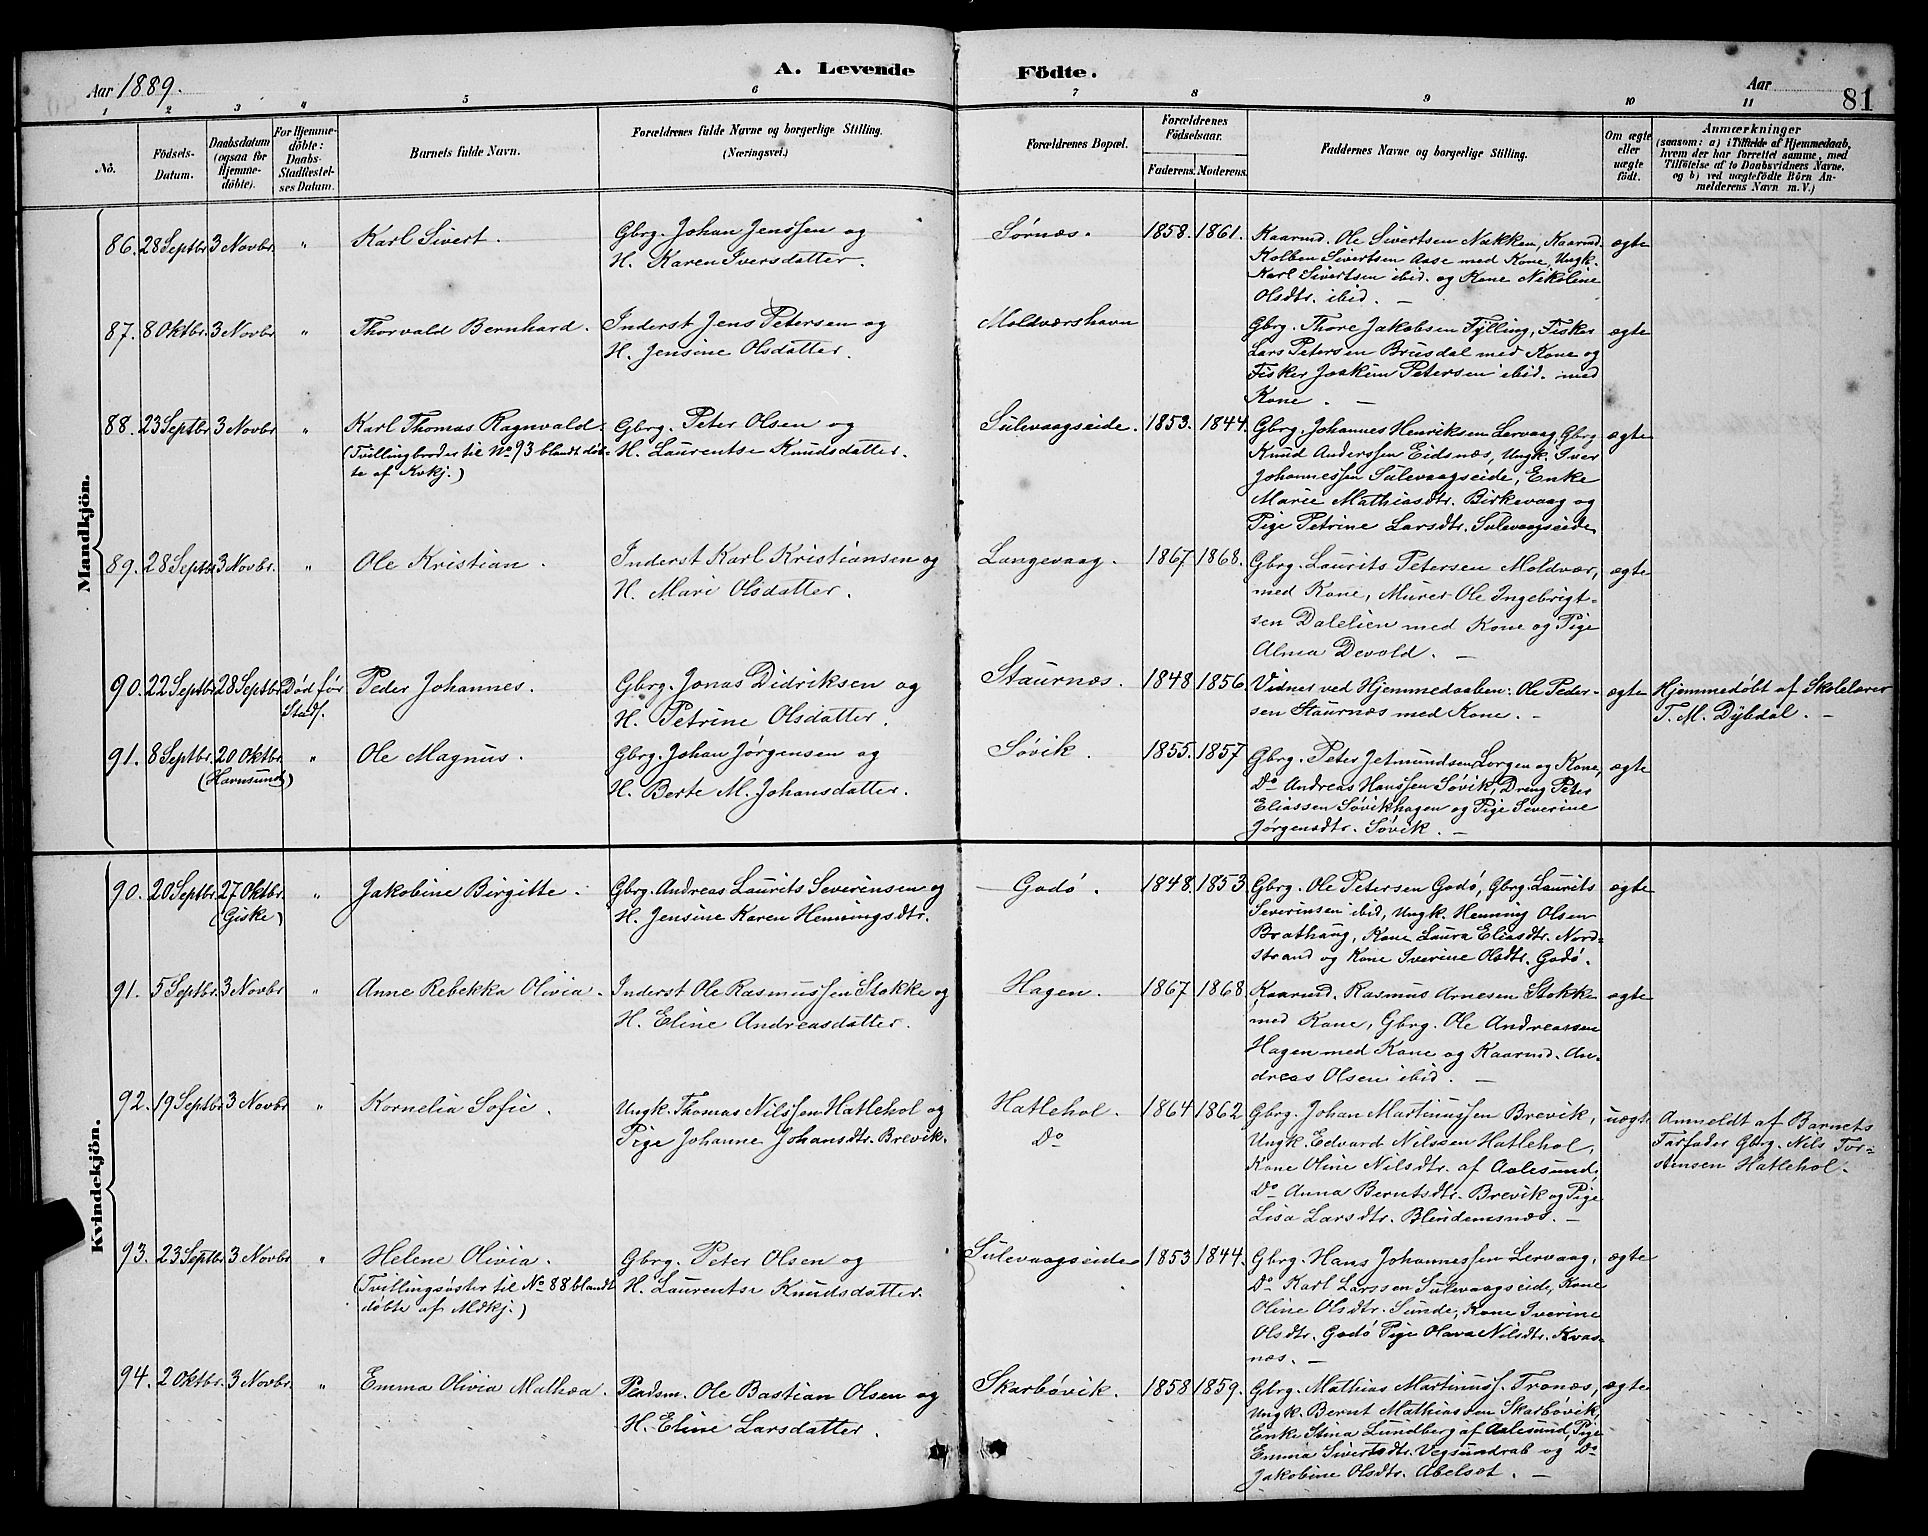 Aar 1889.
A. Levende Födte.
Aar
81
1 2 3 4 5 6 7 8 9 10 11
No.
Födsels-
Datum.
Daabsdatum
(ogsaa for
Hjemme-
döbte).
For Hjemme-
döbte:
Daabs-
Stadfæstel-
ses Datum.
Barnets fulde Navn.
Forældrenes fulde Navne og borgerlige Stilling.
(Næringsvei.)
Forældrenes Bopæl.
Forældrenes
Födselsaar.
Faderens. Moderens.
Faddernes Navne og borgerlige Stilling.
Om ægte
eller
uægte
födt.
Anmærkninger
(saasom: a) i Tilfælde af Hjemmedaab,
hvem der har forrettet samme, med
Tilföielse af to Daabsvidners Navne,
og b) ved uægtefödte Börn An-
melderens Navn m. V.)
Mandkjön.
86. 28 Septbr. 3 Novbr. " Karl Sivert. Gbrg. Johan Jenssen og Sørnæs. 1858. 1861. Kaarmd. Ole Sivertsen Nakken, Kaarmd. ægte
H. Karen Iversdatter. Kolben Sivertsen Aase med Kone, Ungk.
Karl Sivertsen ibid. og Kone Nikoline
Olsdtr. ibid. —
87. 8 Oktbr. 3 Novbr. " Thorvald Bernhard. Inderst Jens Petersen og Moldværshavn Gbrg. Thore Jakobsen Fylling, Fisker ægte
H. Jensine Olsdatter. Lars Petersen Brusdal med Kone og
Fisker Joakim Petersen ibid. med
Kone. —
88. 23 Septbr. 3 Novbr. " Karl Thomas Ragnvald. Gbrg. Peter Olsen og Sulevaagseide. 1853. 1844. Gbrg. Johannes Henriksen Lervaag, Gbrg. ægte
(Tvillingbroder til No 93 blandt døb- H. Laurentse Knudsdatter. Knud Anderssen Eidsnæs, Ungk. Iver
te af Kvkj.) Johannessen Sulevaagseide, Enke
Marie Mathiasdtr. Birkevaag og
Pige Petrine Larsdtr. Sulevaagseide
89. 28 Septbr. 3 Novbr. " Ole Kristian. Inderst Karl Kristiansen og Langevaag. 1867. 1868. Gbrg. Laurits Petersen Moldvær, ægte
H. Mari Olsdatter. med Kone, Murer Ole Ingebrigt-
sen Dalelien med Kone og Pige
Alma Devold. —
90. 22 Septbr. 28 Septbr. Død før Peder Johannes. Gbrg. Jonas Didriksen og Staurnæs. 1848 1856. Vidner ved Hjemmedaaben: Ole Peder- ægte Hjemmedøbt af Skolelærer
Stadf. H. Petrine Olsdatter. sen Staurnæs med Kone. — T. M. Dybdal. —
91. 8 Septbr. 20 Oktbr. " Ole Magnus. Gbrg. Johan Jørgensen og Søvik. 1855. 1857 Gbrg. Peter Jetmundsen Lorgen og Kone, ægte
(Hamsund) H. Berte M. Johansdatter. Do Andreas Hanssen Søvik, Dreng Peter
Eliassen Søvikhagen og Pige Severine
Jørgensdtr. Søvik. —
Kvindekjön.
90. 20 Septbr. 27 Oktbr. " Jakobine Birgitte. Gbrg. Andreas Laurits Severinsen og Godø. 1848. 1853 Gbrg. Ole Petersen Godø, Gbrg. Laurits ægte
(Giske) H. Jensine Karen Henningsdtr. Severinsen ibid, Ungk. Henning Olsen
Brathaug, Kone Laura Eliasdtr. Nord-
strand og Kone Iverine Olsdtr. Godø.
91. 5 Septbr. 3 Novbr. " Anne Rebekka Olivia. Inderst Ole Rasmussen Stokke og Hagen. 1867. 1868. Kaarmd. Rasmus Arnesen Stokke ægte
H. Eline Andreasdatter. med Kone, Gbrg. Ole Andreassen
Hagen med Kone og Kaarmd. An-
dreas Olsen ibid. —
92. 19 Septbr. 3 Novbr. " Kornelia Sofie. Ungk. Thomas Nilssen Hatlehol og Hatlehol. 1864 1862 Gbrg. Johan Martinussen Brevik, uægte Anmeldt af Barnets
Pige Johanne Johansdtr. Brevik. Do Ungk. Edvard Nilssen Hatlehol, Farfader Gbrg. Nils Tor-
Kone Oline Nilsdtr. af Aalesund, stensen Hatlehol. —
Do Anna Berntsdtr. Brevik og Pige
Lisa Larsdtr. Blindemsnæs. —
93. 23 Septbr. 3 Novbr. " Helene Olivia. Gbrg. Peter Olsen og Sulevaagseide 1853 1844. Gbrg. Hans Johannessen Lervaag, ægte
(Tvillingsøster til No 88 blandt H. Laurentse Knudsdatter. Do Karl Larssen Sulevaagseide, Kone
døbte af Mdkj.) Oline Olsdtr. Sunde, Kone Iverine
Olsdtr. Godø Pige Olava Nilsdtr. Kvas-
næs. —
94. 2 Oktbr. 3 Novbr. " Emma Olivia Mathea. Pladsm. Ole Bastian Olsen og Skarbøvik. 1858 1859. Gbrg. Mathias Martinuss. Tronæs, ægte
H. Eline Larsdatter. Ungk. Bernt Mathiassen Skarbøvik,
Enke Stina Lundberg af Aalesund, Pige
Emma Sivertsdtr. Vegsundrab og Do
Jakobine Olsdtr. Abelset. —